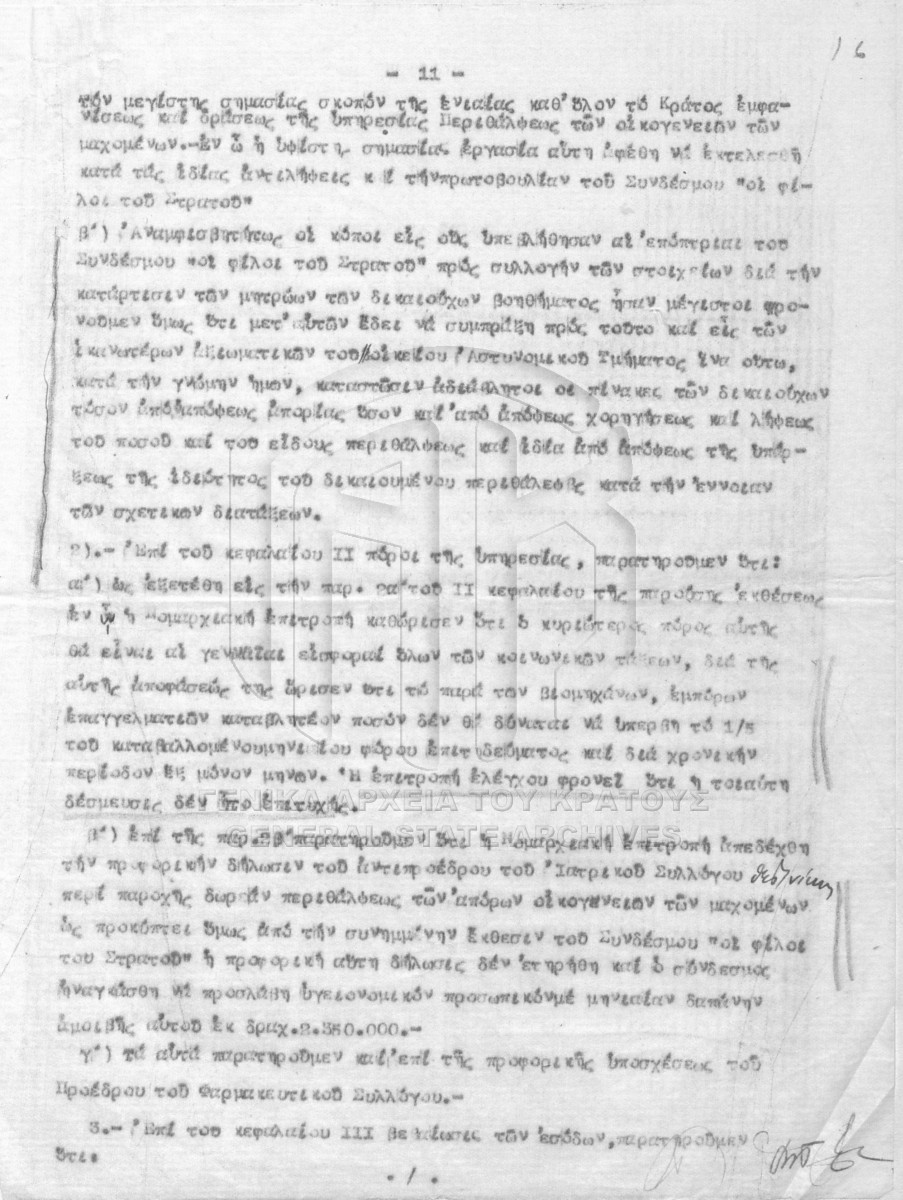 16
- 11 -
τόν μεγίστης σημασίας σκοπόν τῆς ἑνιαίας καθ'ὅλον τό Κράτος ἐμφα-
νίσεως καί δράσεως τῆς ὑπηρεσίας Περιθάλψεως τῶν οἰκογενειῶν τῶν
μαχομένων.-Ἐν ᾧ ἡ ὑψίστης σημασίας ἐργασία αὕτη ἀφέθη νά ἐκτελεσθῆ
κατά τάς ἰδίας ἀντιλήψεις καί τήνπρωτοβουλίαν τοῦ Συνδέσμου "οἱ φί-
λοι τοῦ Στρατοῦ"
β') Ἀναμφισβητήτως οἱ κόποι εἰς οὕς ὑπεβλήθησαν αἱ ἐπόπτριαι τοῦ
Συνδέσμου "οἱ φίλοι τοῦ Στρατοῦ" πρός συλλογήν τῶν στοιχείων διά τήν
κατάρτισιν τῶν μητρώων τῶν δικαιούχων βοηθήματος ἦσαν μέγιστοι φρο-
νοῦμεν ὅμως ὅτι μετ'αὐτῶν ἔδει νά συμπράξη πρός τοῦτο καί εἷς τῶν
ἱκανωτέρων ἀξιωματικῶν τοῦ οἰκείου Ἀστυνομικοῦ Τμήματος ἵνα οὕτω,
κατά τήν γνώμην ἡμῶν, καταστῶσιν ἀδιάβλητοι οἱ πίνακες τῶν δικαιούχων
τόσον ἀπό ἀπόψεως ἀπορίας ὅσον καί ἀπό ἀπόψεως χορηγήσεως καί λήψεως
τοῦ ποσοῦ καί τοῦ εἴδους περιθάλψεως καί ἰδία ἀπό ἀπόψεως τῆς ὑπάρ-
ξεως τῆς ἰδιότητος τοῦ δικαιουμένου περιθάλψεως κατά τήν ἔννοιαν
τῶν σχετικῶν διατάξεων.
2).- Ἐπί τοῦ κεφαλαίου ΙΙ πόροι τῆς ὑπηρεσίας, παρατηροῦμεν ὅτι:
α') ὡς ἐξετέθη εἰς τήν παρ. 2α τοῦ ΙΙ κεφαλαίου τῆς παρούσης ἐκθέσεως
ἐν ᾧ ἡ Νομαρχιακή ἐπιτροπή καθώρισεν ὅτι ὁ κυριώτερος πόρος αὐτῆς
θά εἶναι αἱ γενναῖαι εἰσφοραί ὅλων τῶν κοινωνικῶν τάξεων, διά τῆς
αὐτῆς ἀποφάσεώς της ὥρισεν ὅτι τό παρά τῶν βιομηχάνων, ἐμπόρων
ἐπαγγελματιῶν καταβλητέον ποσόν δέν θά δύναται νά ὑπερβῆ τό 1/5
τοῦ καταβαλλομένουμηνιαίου φόρου ἐπιτηδεύματος καί διά χρονικήν
περίοδον ἕξ μόνον μηνῶν. Ἡ ἐπιτροπή ἐλέγχου φρονεῖ ὅτι ἡ τοιαύτη
δέσμευσις δέν ἦτο ἐπιτυχής.
ΓΕΝΙΚΑ ΑΡΧΕΙΑ ΤΟΥ ΚΡΑΤΟΥΣ
GENERAL STATE ARCHIVES
β') ἐπί τῆς παρ. 2β παρατηροῦμεν ὅτι ἡ Νομαρχιακή ἐπιτροπή ἀπεδέχθη
τήν προφορικήν δήλωσιν τοῦ ἀντιπροέδρου τοῦ Ἰατρικοῦ Συλλόγου Θεσ/νίκης
περί παροχῆς δωρεάν περιθάλψεως τῶν ἀπόρων οἰκογενειῶν τῶν μαχομένων
ὡς προκύπτει ὅμως ἀπό τήν συνημμένην ἔκθεσιν τοῦ Συνδέσμου "οἱ φίλοι
τοῦ Στρατοῦ" ἡ προφορική αὕτη δήλωσις δέν ἐτηρήθη καί ὁ σύνδεσμος
ἠναγκάσθη νά προσλάβη ὑγειονομικόν προσωπικόνμέ μηνιαίαν δαπάνην
ἀμοιβῆς αὐτοῦ ἐκ δραχ.2.350.000.-
γ') τά αὐτά παρατηροῦμεν καί ἐπί τῆς προφορικῆς ὑποσχέσεως τοῦ
Προέδρου τοῦ Φαρμακευτικοῦ Συλλόγου.-
3.- Ἐπί τοῦ κεφαλαίου ΙΙΙ βεβαίωσις τῶν ἐσόδων,παρατηροῦμεν
ὅτι.
./.